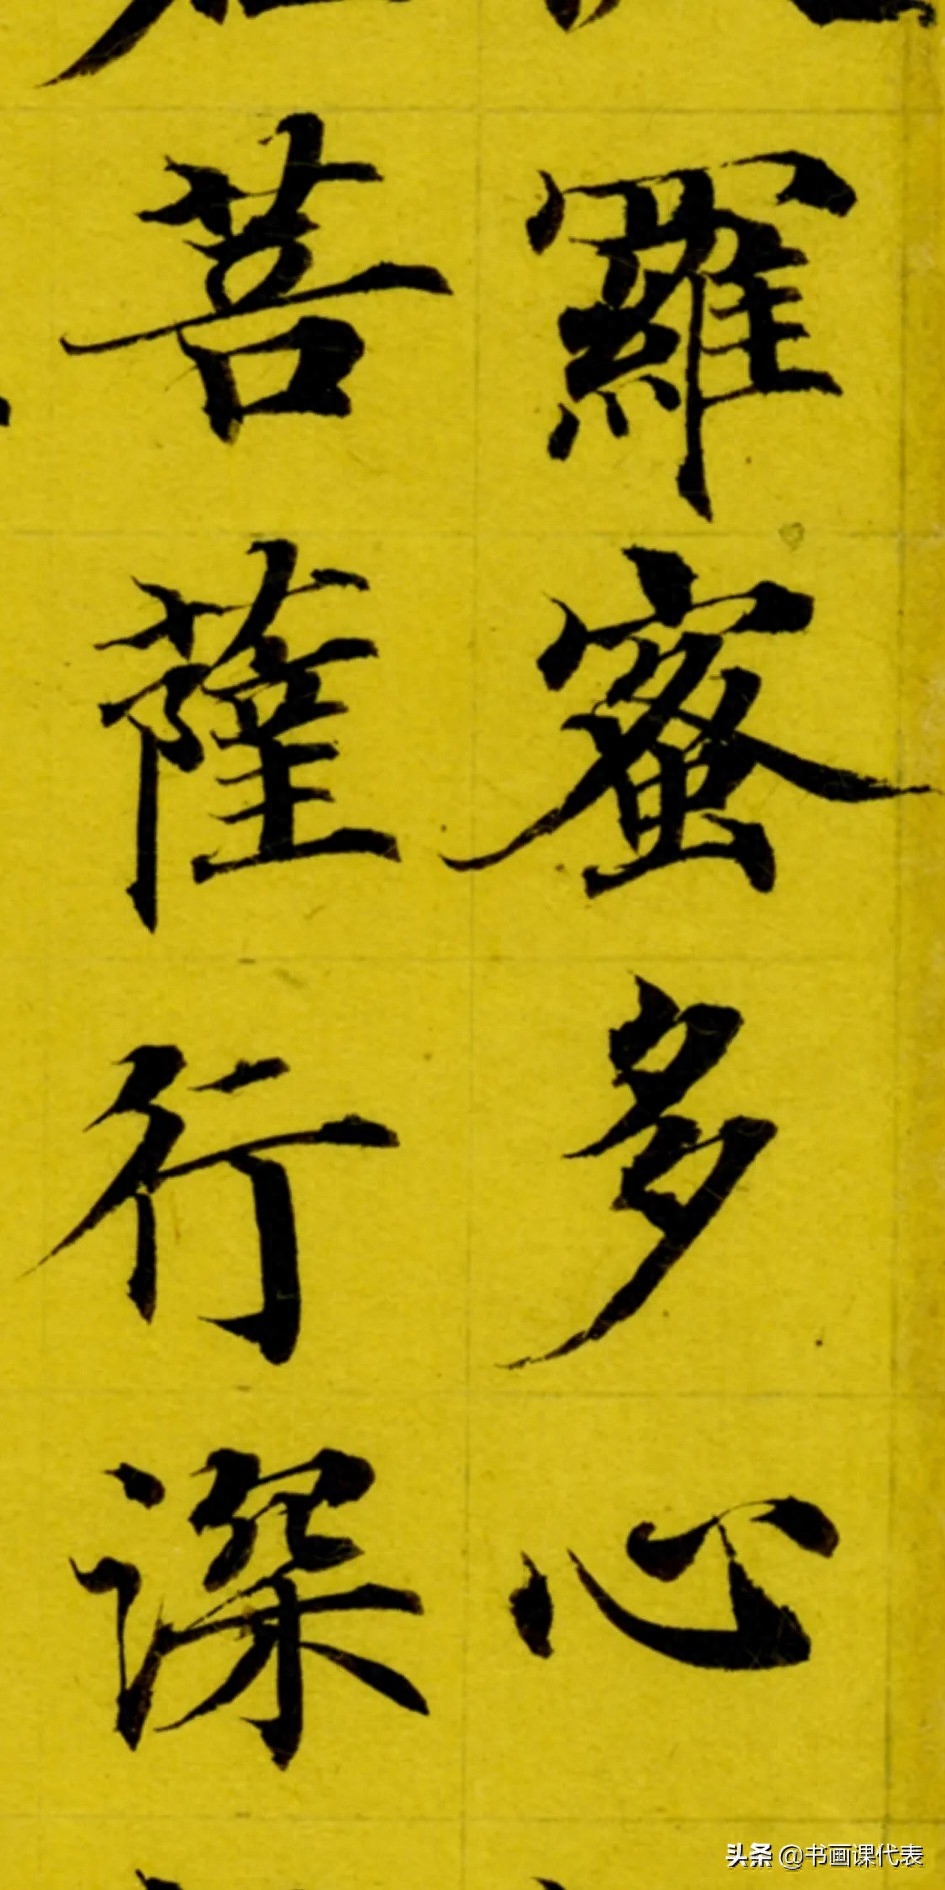 羅蜜多心
菩薩行深
头条 @书画课代表